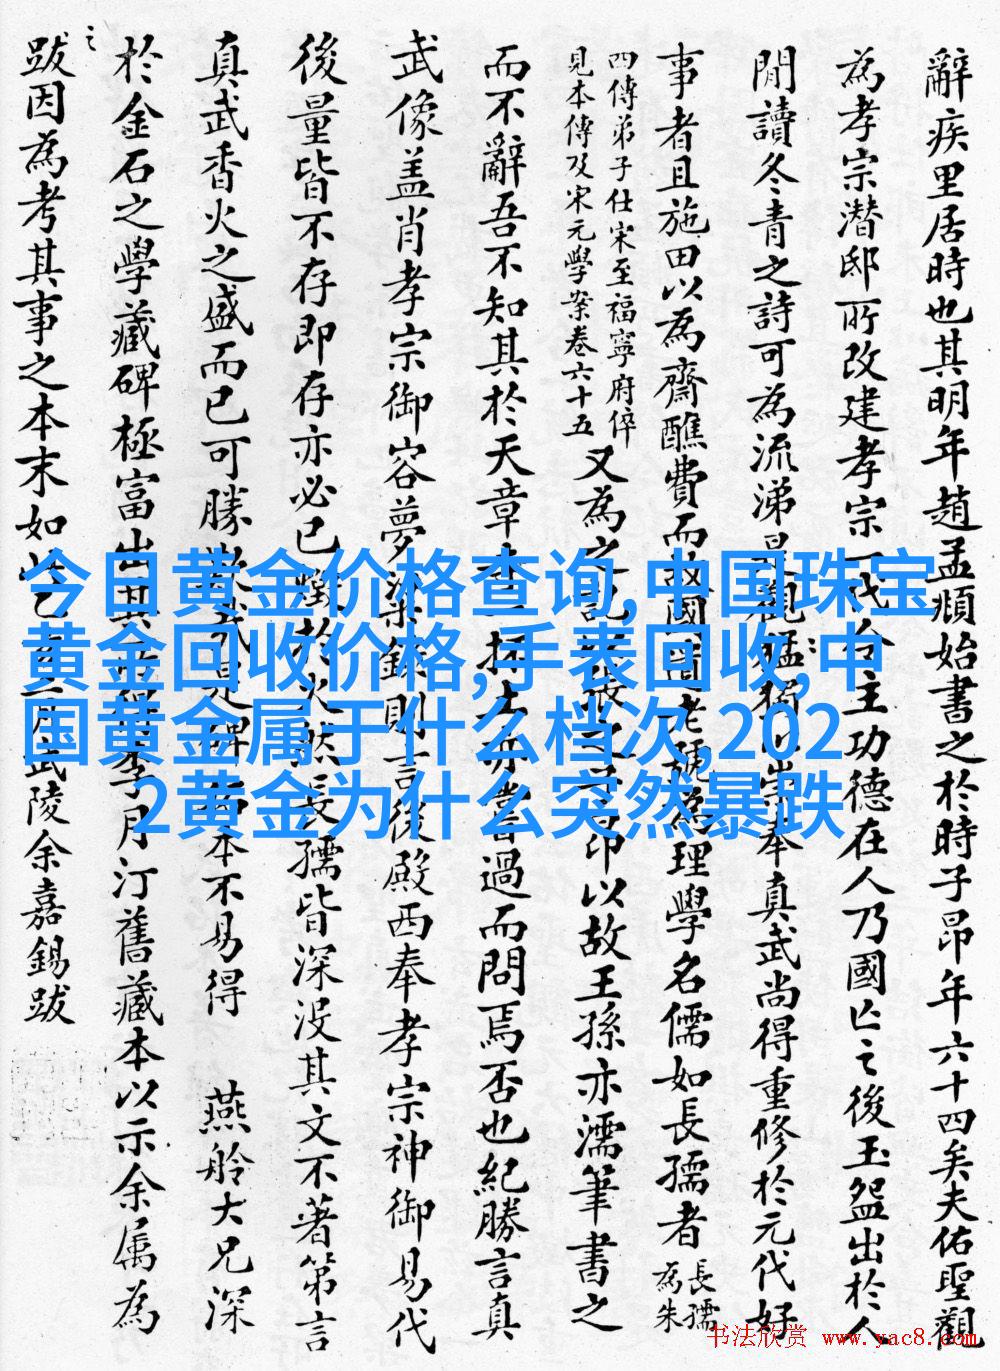 辭疾里居時也其明年趙孟頫始書之於時子昂年六十四矣夫佑聖觀
為孝宗潜邸所改建孝宗一代令主功德在人乃國亡之後玉盌出於人
間讀冬青之詩可為流涕是觀巋獨以崇奉真武尚得重修於元代好
事者且施田以為齋醮費而故國遺老號為理學名儒如長孺者
長孺
為朱
四傳弟子仕宋至福寧府倅
見本傳及宋元學案卷六十五
又為之記昂以故王孫亦濡筆書之
而不辭吾不知其於天章過而問焉否也紀勝言真
武像盖肖孝宗御容夢粱錄則言後殿西奉孝宗神御易代
後量皆不存即存亦必已燬於火然長孺皆深没其文不著第言
真武香火之盛而已可勝歎哉見碑本不易得 燕舲大兄深
於金石之學藏碑極富出其李月汀舊藏本以示余属為
之
跋因為考其事之本末如此乙月武陵余嘉錫跋
今日黄金价格查询,中国珠宝
黄金回收价格,手表回收,中
国黄金属于什么档次,202
2黄金为什么突然暴跌
书法欣赏 www.yac8.com